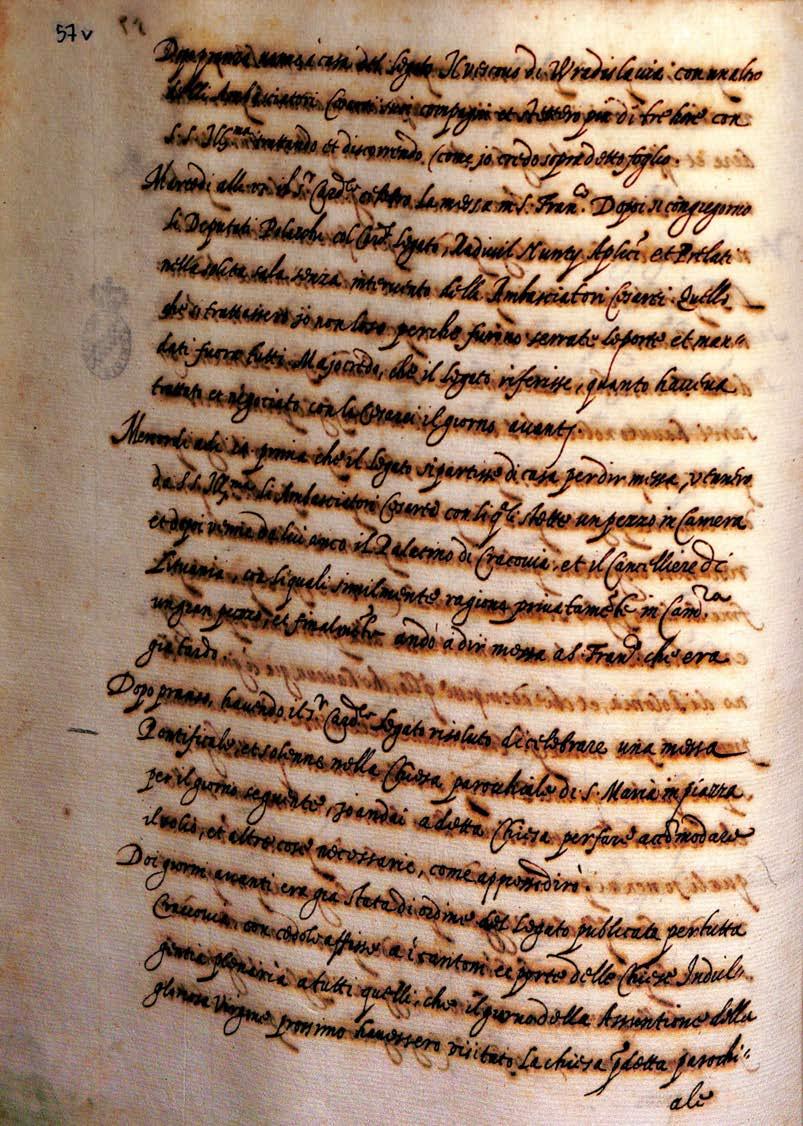 57v
Dopo pranzo venne a casa del Legato Il Vescovo di Wradislavia con un altro
delli Ambasciatori Cesarei suoi compagni et stettero più di tre hore con
S. S. Ill.ma trattando et discorrendo, (come jo credo sopra detto foglio.
Martedi alli il S.r Card.le la messa in S. Fran.co Dopoi si congregorno
li Deputati Polacchi col Card. Legato, Radivil Nuntij Aplici et Prelati
nella solita sala senza intervento delli Ambasciatori Cesarei. Quello
che si trattassero jo non lo so perche furono serrate le porte et man-
dati fuora tutti. Ma jo credo, che il Legato riferisse, quanto haveva
trattato et negociato con li Cesarei il giorno avanti.
Mercordi adi prima che il Legato si partisse di casa per dir messa, vennero
da S. S. Ill.ma li Ambasciatori Cesarei con li q.li stette un pezzo in Camera
et dopoi venne da lui anco il Palatino di Cracovia, et il Cancelliere di
Lituania, con li quali similmente ragionò privatamẽte in Cam.ra
un gran pezzo, et finalmẽte andò a dir messa a S. Fran.co che era
gia tardi.
Dopo pranzo, havendo il S.r Card.le Legato risoluto di celebrare una messa
Pontificale, et solenne nella Chiesa parochiale di S. Maria in piazza
per il giorno seguente, jo andai a detta Chiesa per fare accõmodare
il solio, et altre cose necessarie, come appresso dirò.
Doi giorni avanti era gia stata di ordine del Legato publicata per tutta
Cracovia con cedole affisse a i cantoni et porte delle Chiese Indul-
gentia plenaria a tutti quelli, che il giorno della Assuntione della
gloriosa Vergine prossimo havessero visitato la chiesa p̃detta parochi-
ale